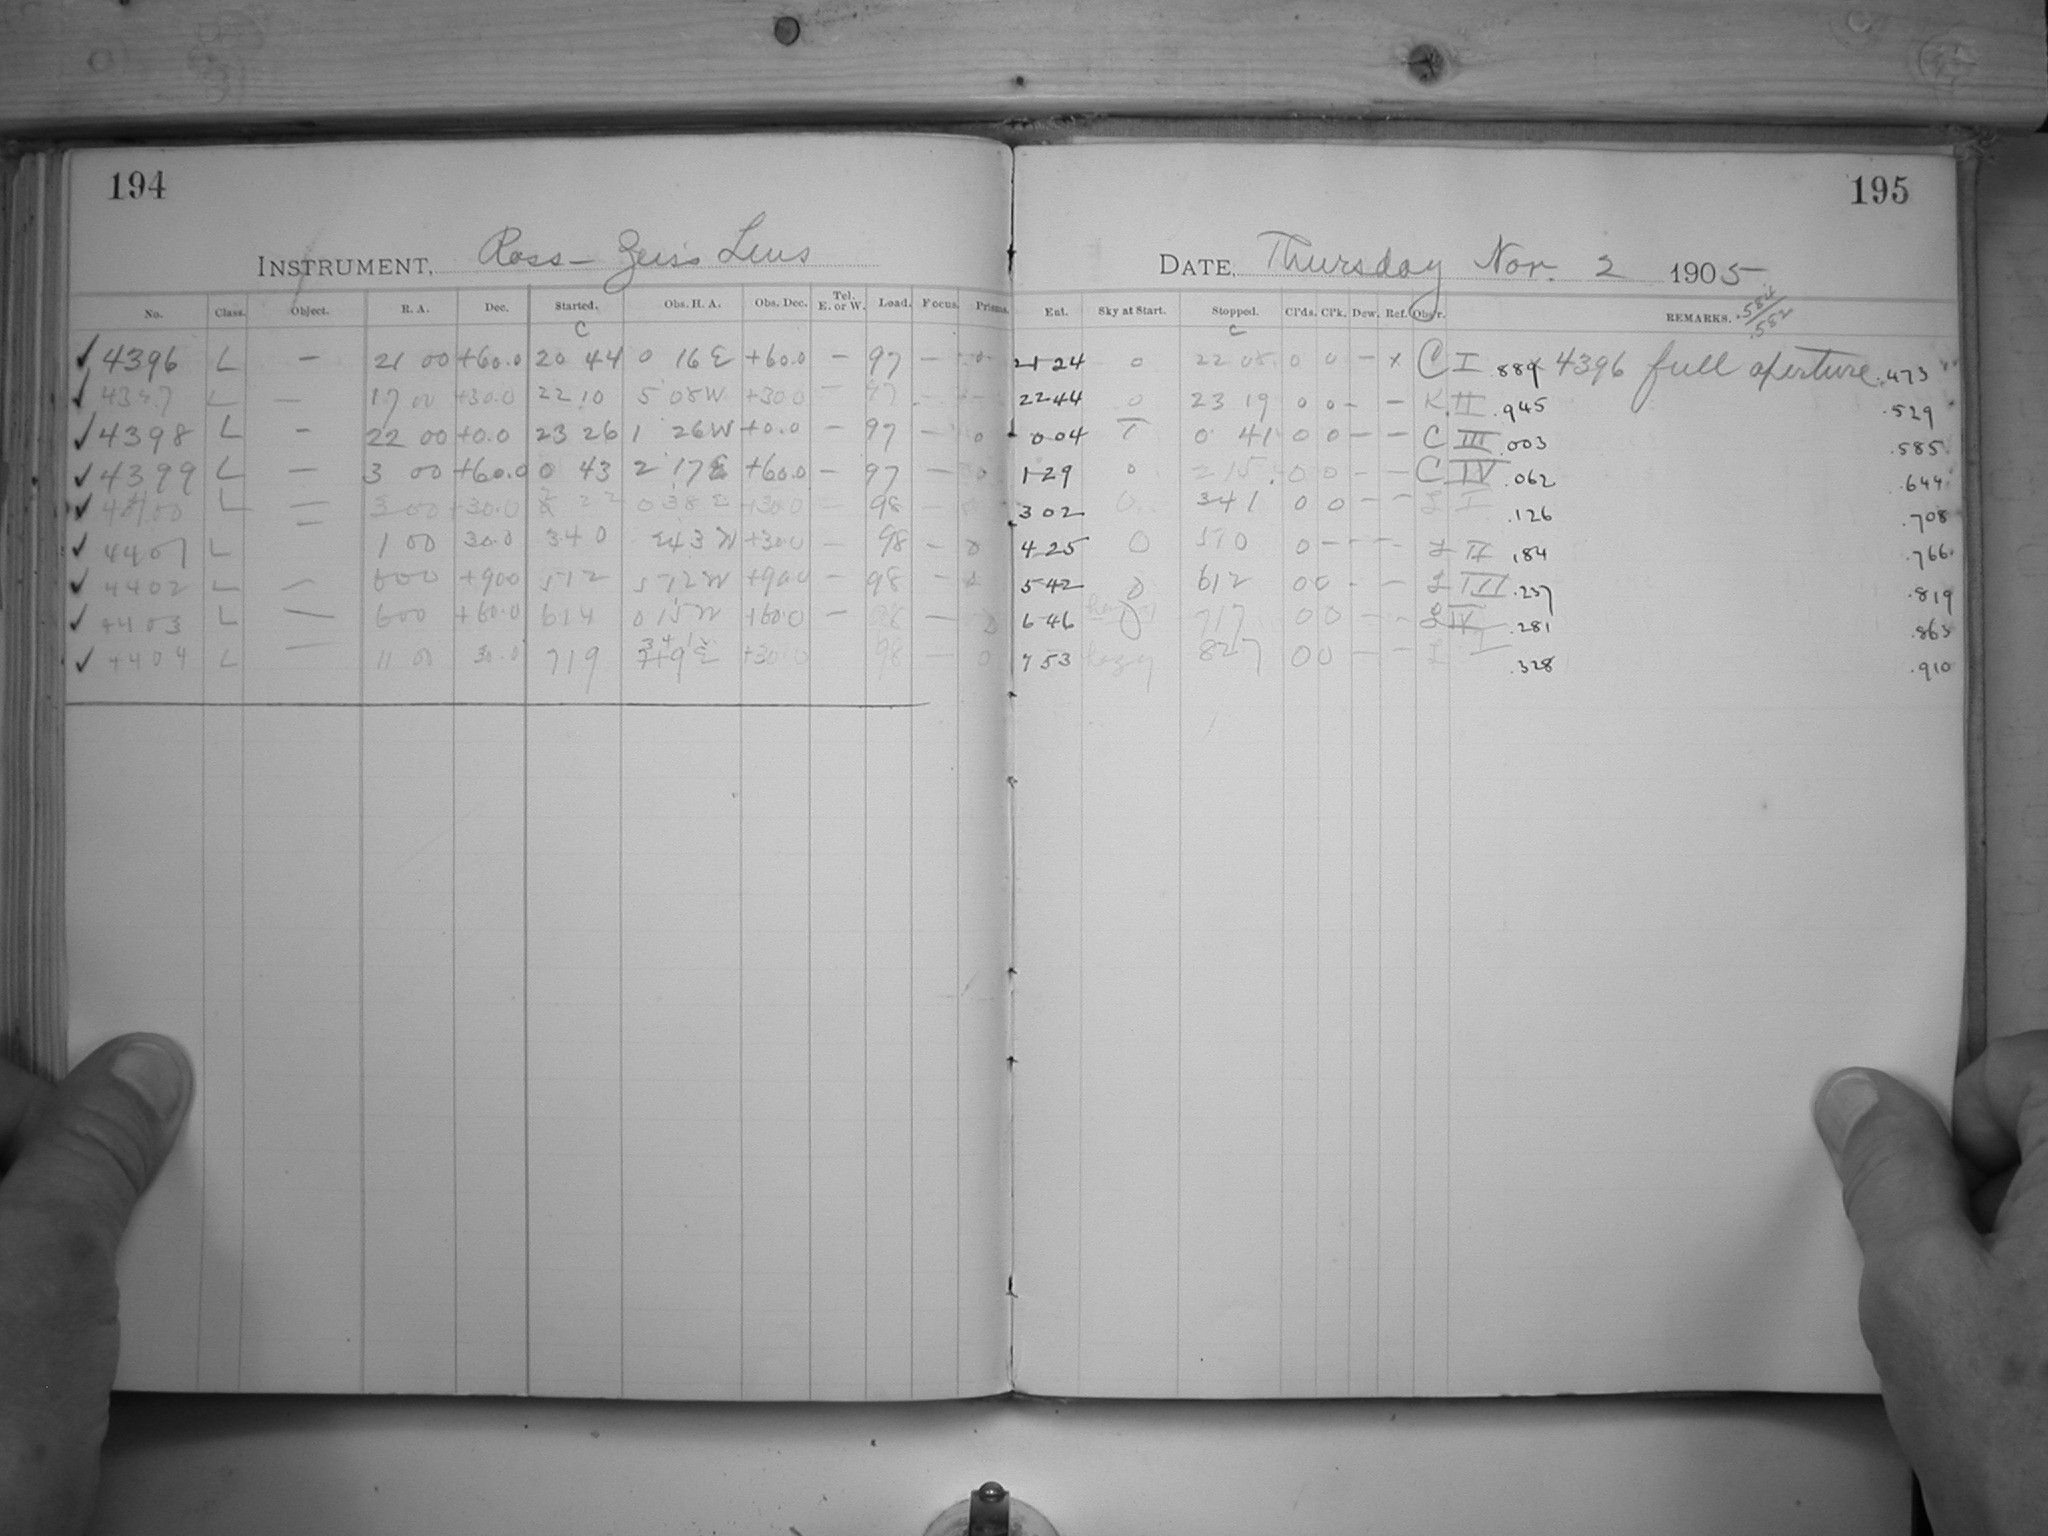 194
195
INSTRUMENT, Ross-Zeiss Lens
DATE, Thursday Nov. 2 1905
No. Class. Object. R. A. Dec. Started. Obs. H. A. Obs. Dec. Tel. E. or W. Load. Focus. Prisms. Ent. Sky at Start. Stopped. Cl'ds. Cl'k. Dew. Ref. Obs'r. REMARKS. .584/.582
C C
✓ 4396 L — 21 00 +60.0 20 44 0 16 E +60.0 — 97 — 0 21 24 0 22 08 0 0 — x C I .889 4396 full aperture .473
✓ L — 17 00 +30.0 22 10 5 08 W +30.0 — 97 — 22 44 0 23 19 0 0 — — K II .945 .529
✓ 4398 L — 22 00 +0.0 23 26 1 26 W +0.0 — 97 — 0 0 04 T 0 41 0 0 — — C III .003 .585
✓ 4399 L — 3 00 +60.0 0 43 2 17 E +60.0 — 97 — 0 1 29 0 2 15 0 0 — — C IV .062 .644
✓ 4400 L — 3 00 +30.0 2 22 0 38 E +30.0 — 98 — 0 3 02 0 3 41 0 0 — — L I .126 .708
✓ 4401 L 1 00 30.0 3 40 2 43 W +30.0 — 98 — 0 4 25 0 5 10 0 — — — L II .184 .766
✓ 4402 L — 6 00 +90.0 5 12 5 12 W +90.0 — 98 — 5 42 0 6 12 0 0 — — L III .237 .819
✓ 4403 L — 6 00 +60.0 6 14 0 15 W +60.0 — 98 — 0 6 46 hazy 7 17 0 0 — — L IV .281 .863
✓ 4404 L — 11 00 30.0 7 19 3 41 E +30.0 98 — 0 7 53 hazy 8 27 0 0 — — L I .328 .910